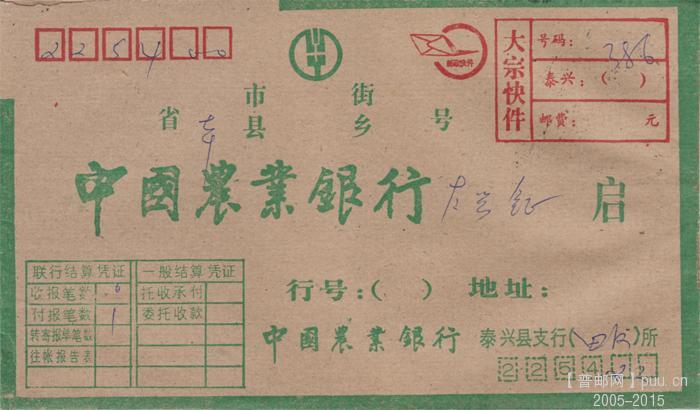 225400
邮政快件
大宗快件
号码: 386
泰兴:( )
邮费: 元
省 市县 街乡 号
本
中國農業銀行 启
联行结算凭证 一般结算凭证
收报笔数 托收承付
付报笔数 1 委托收款
转寄报单笔数
往帐报告表
行号:( ) 地址:
中國農業銀行 泰兴县支行( )所
2254
【普邮网】puu.cn
2005-2015